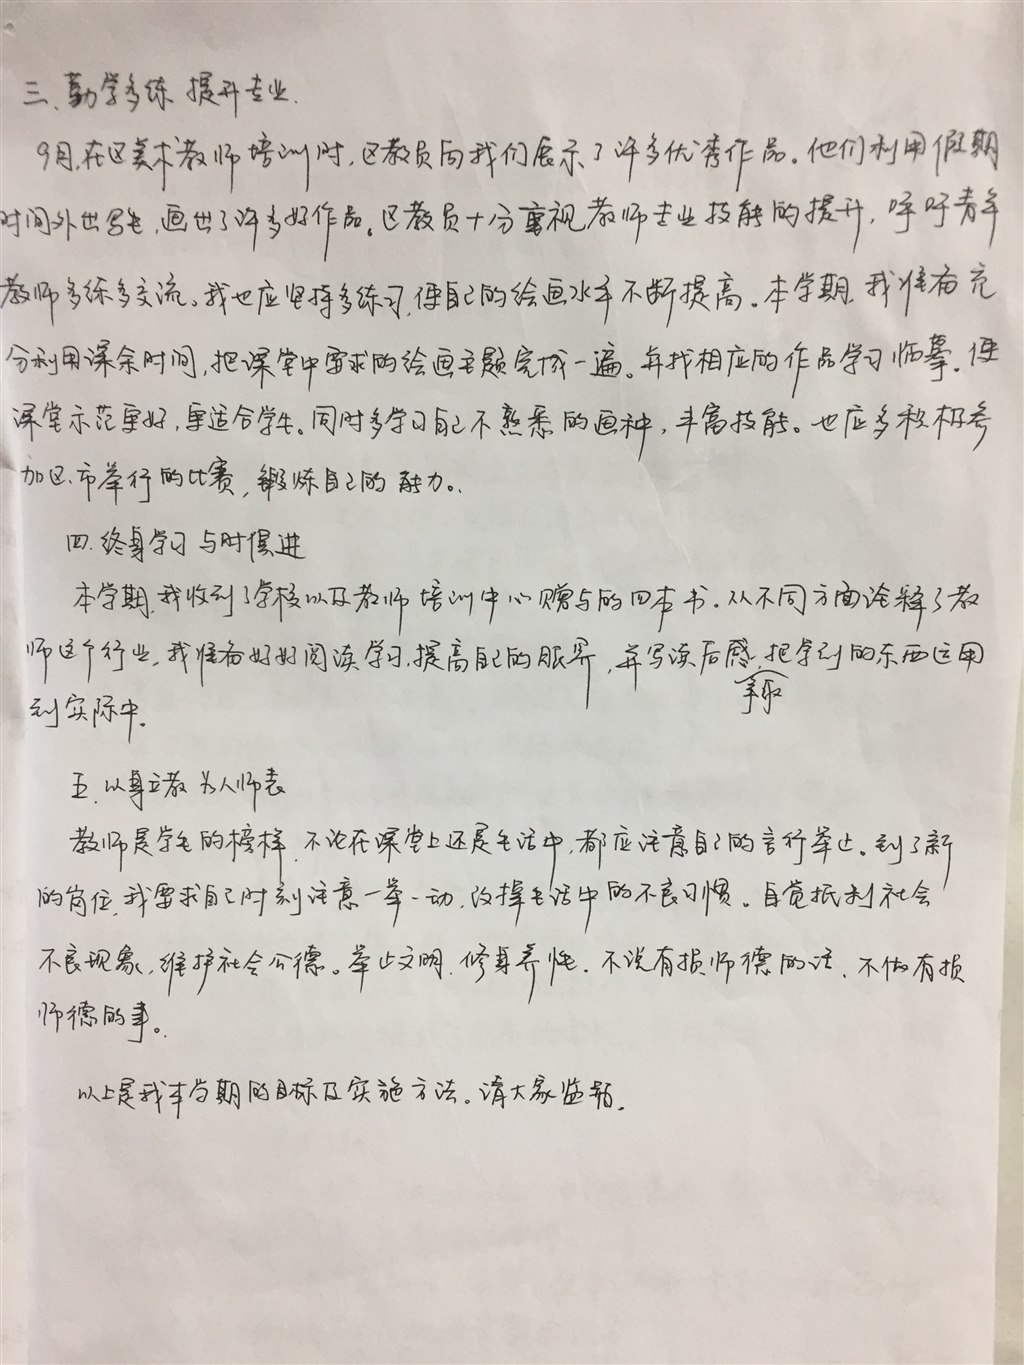 三、勤学多练 提升专业.
9月,在区美术教师培训时,区教员向我们展示了许多优秀作品。他们利用假期
时间外出写生,画出了许多好作品。区教员十分重视教师专业技能的提升,呼吁青年
教师多练多交流。我也应坚持多练习,使自己的绘画水平不断提高。本学期,我准备充
分利用课余时间,把课堂中要求的绘画主题完成一遍。并找相应的作品学习临摹。使
课堂示范更好,更适合学生。同时多学习自己不熟悉的画种,丰富技能。也应多积极参
加区、市举行的比赛,锻炼自己的能力。
四.终身学习 与时俱进
本学期,我收到了学校以及教师培训中心赠与的四本书。从不同方面诠释了教
师这个行业,我准备好好阅读学习,提高自己的眼界,并写读后感,把学到的东西运用
争取
到实际中。
五.以身立教 为人师表
教师是学生的榜样,不论在课堂上还是生活中,都应注意自己的言行举止。到了新
的岗位,我要求自己时刻注意一举一动,改掉生活中的不良习惯。自觉抵制社会
不良现象,维护社会公德。举止文明,修身养性,不说有损师德的话,不做有损
师德的事。
以上是我本学期的目标及实施方法。请大家监督.